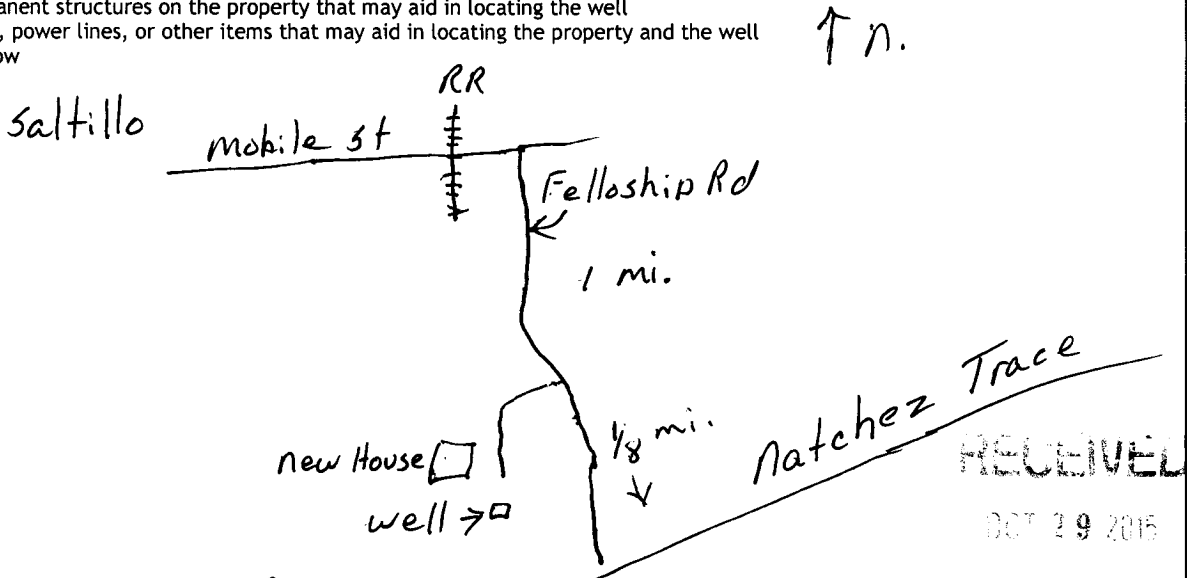 anent structures on the property that may aid in locating the well
, power lines, or other items that may aid in locating the property and the well
ow
↑ n.
RR
Saltillo
mobile st
Felloship Rd
1 mi.
Natchez Trace
1/8 mi.
new House
well →
RECEIVED
OCT 29 2015